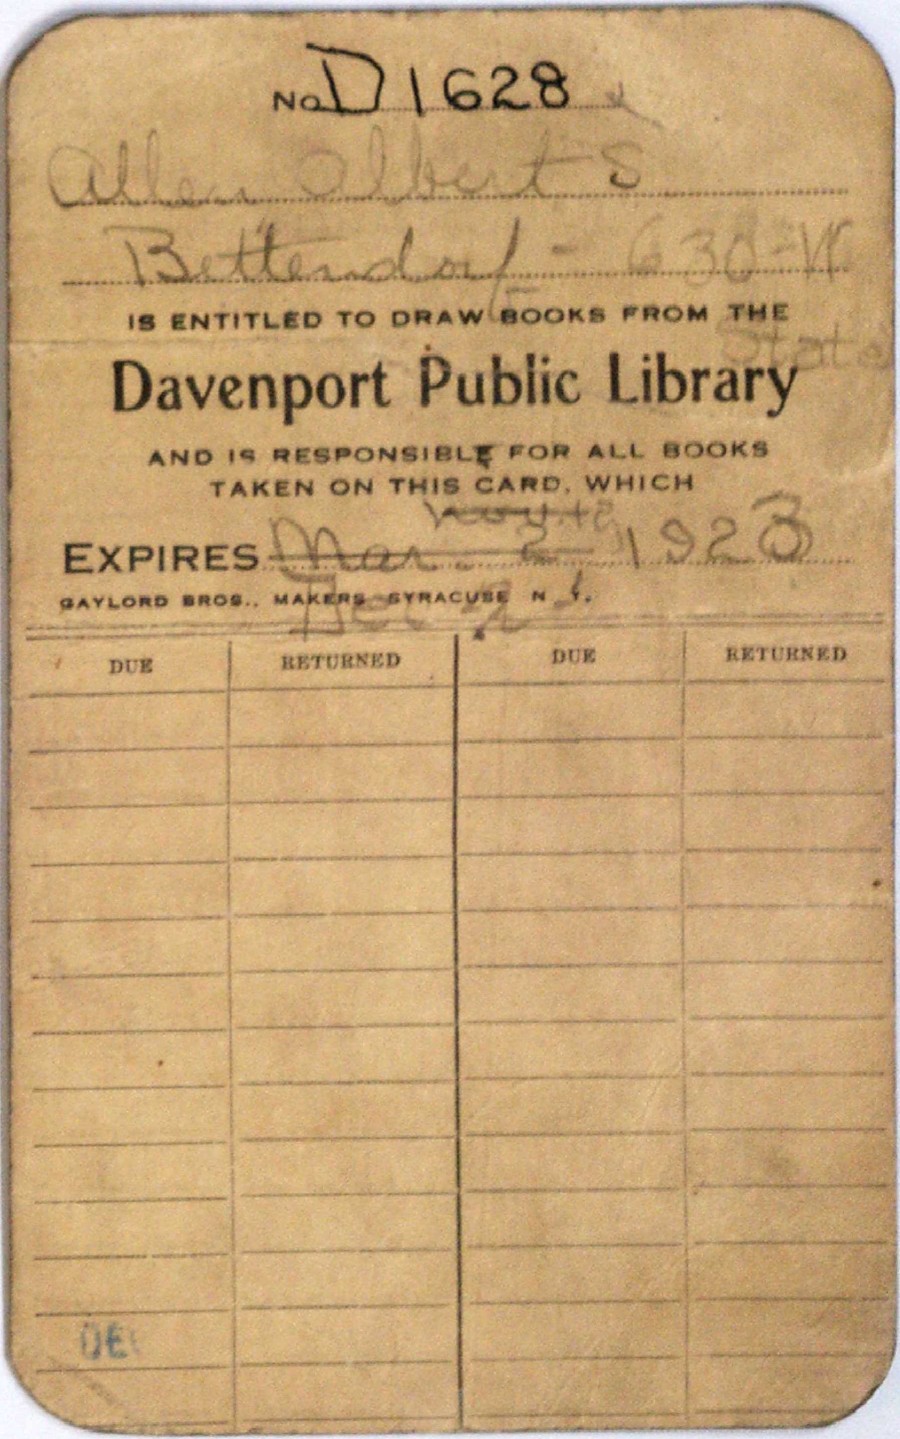 No D1628
Allen Albert S
Bettendorf - 630-W
State
IS ENTITLED TO DRAW BOOKS FROM THE
Davenport Public Library
AND IS RESPONSIBLE FOR ALL BOOKS
TAKEN ON THIS CARD, WHICH
EXPIRES Mar. 2 1923
Dec 2
GAYLORD BROS., MAKERS, SYRACUSE N Y.
DUE RETURNED DUE RETURNED
DE